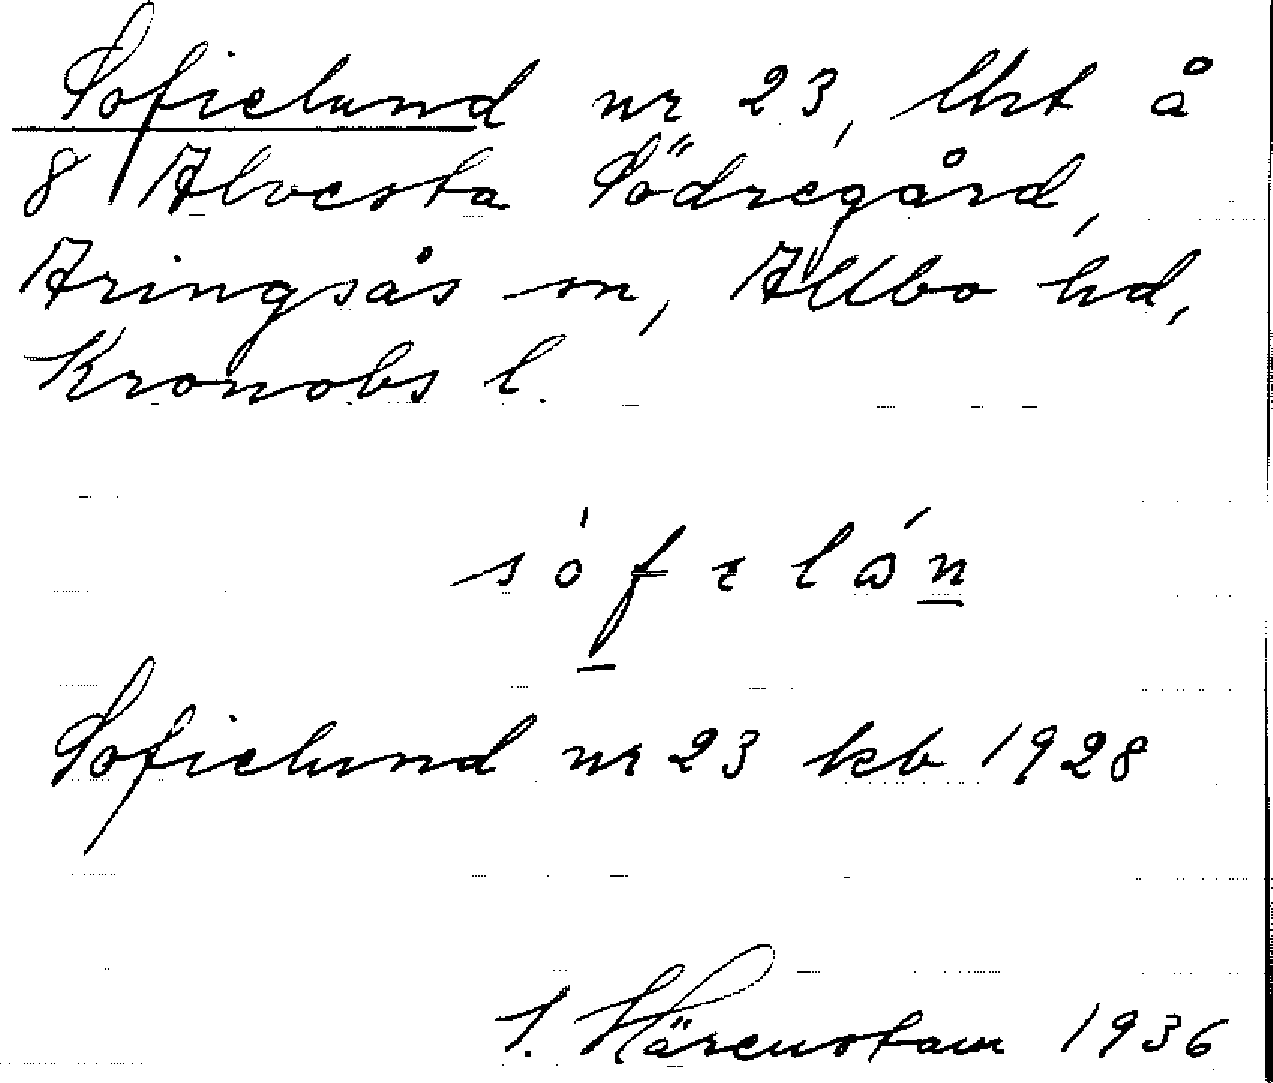 Sofielund nr 23, lht å
8 Alvesta Södregård,
Aringsås sn, Allbo hd,
Kronobs l.
Sofielund nr 23 kb 1928
S. Härenstam 1936